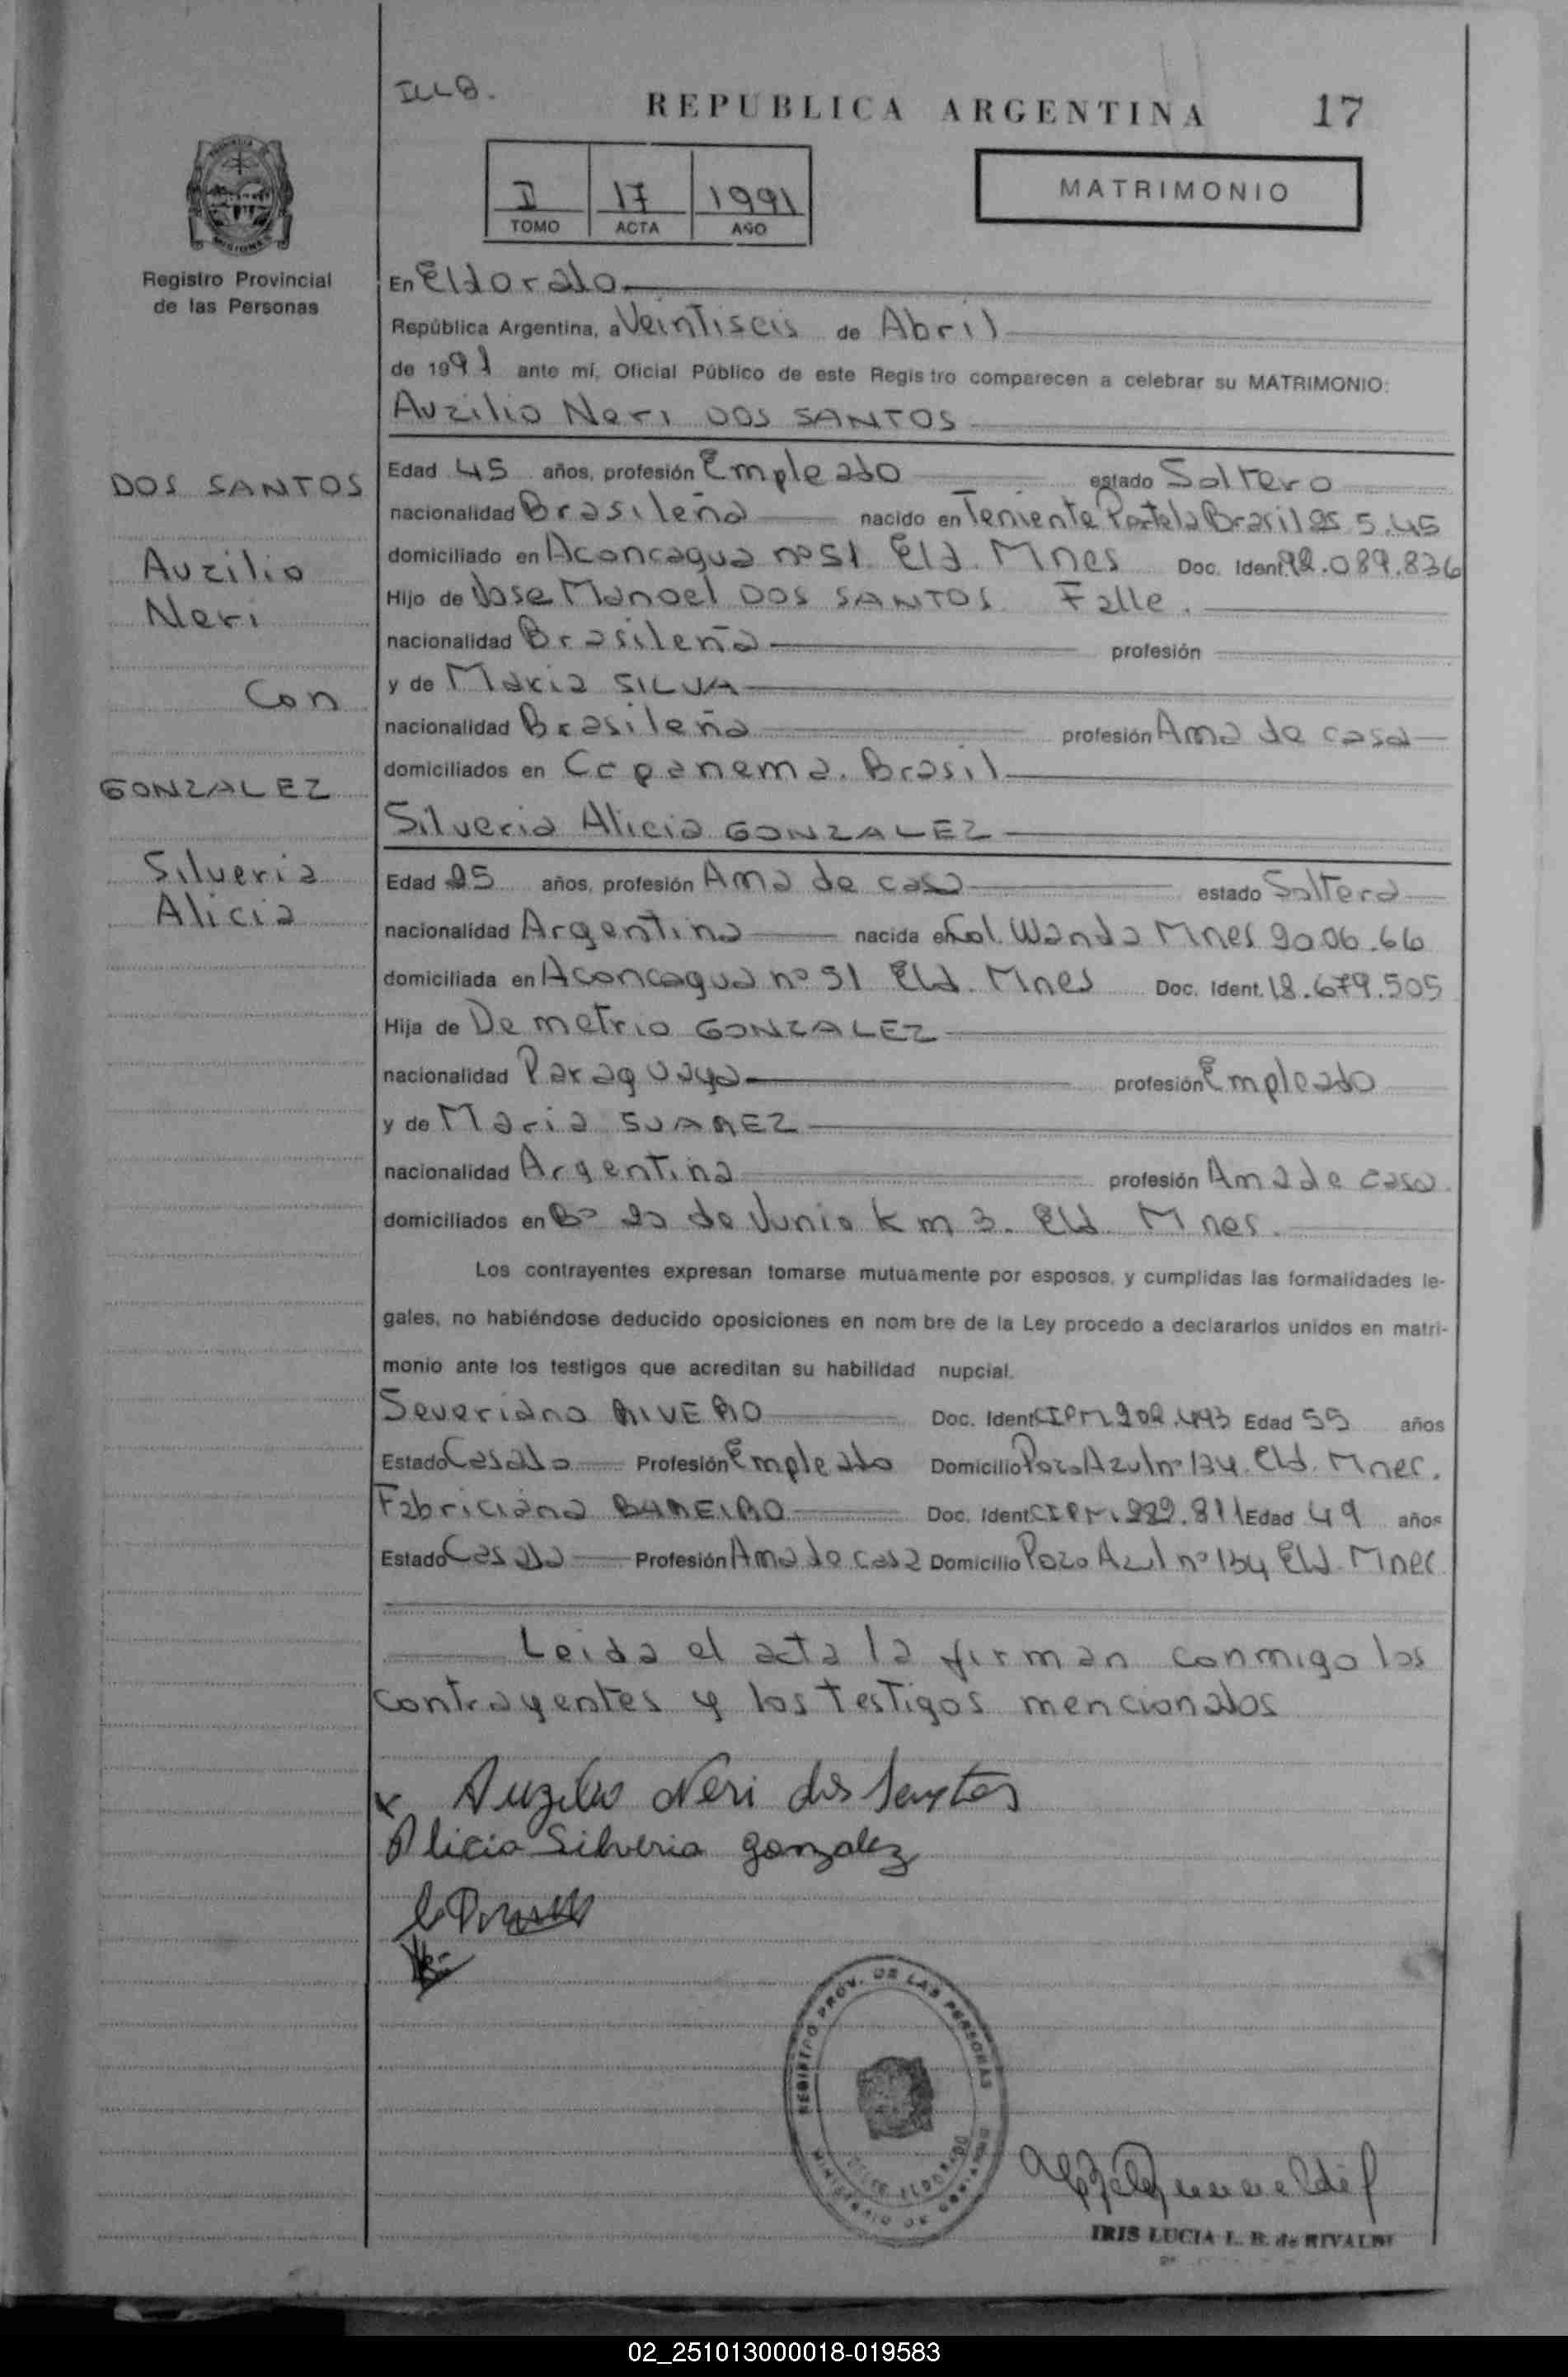 ILLB.
REPUBLICA ARGENTINA 17
I 17 1991
TOMO ACTA AÑO
MATRIMONIO
Registro Provincial
de las Personas
En Eldorado
República Argentina, a Veintiseis de Abril
de 1991 ante mí, Oficial Público de este Registro comparecen a celebrar su MATRIMONIO:
Auzilio Neri DOS SANTOS
DOS SANTOS
Auzilio
Neri
Con
GONZALEZ
Silveria
Alicia
Edad 45 años, profesión Empleado estado Soltero
nacionalidad Brasileña nacido en Teniente Portela Brasil 25 5.45
domiciliado en Aconcagua nº 51. Eld. Mnes Doc. Ident. 92.089.836
Hijo de Jose Manoel DOS SANTOS Falle.
nacionalidad Brasileña profesión
y de Maria SILVA
nacionalidad Brasileña profesión Ama de casa
domiciliados en Capanema. Brasil
Silveria Alicia GONZALEZ
Edad 25 años, profesión Ama de casa estado Soltera
nacionalidad Argentina nacida en Col. Wanda Mnes 20.06.66
domiciliada en Aconcagua nº 51 Eld. Mnes Doc. Ident. 18.679.505
Hija de Demetrio GONZALEZ
nacionalidad Paraguaya profesión Empleado
y de Maria SUAREZ
nacionalidad Argentina profesión Ama de casa
domiciliados en Bº 20 de Junio km 3. Eld. Mnes.
Los contrayentes expresan tomarse mutuamente por esposos, y cumplidas las formalidades le-
gales, no habiéndose deducido oposiciones en nombre de la Ley procedo a declararlos unidos en matri-
monio ante los testigos que acreditan su habilidad nupcial.
Severiano RIVERO Doc. Ident CIPM 202.493 Edad 55 años
Estado Casado Profesión Empleado Domicilio Pozo Azul nº 134. Eld. Mnes.
Fabriciana BAREIRO Doc. Ident CIPM. 222.811 Edad 49 años
Estado Casada Profesión Ama de casa Domicilio Pozo Azul nº 134 Eld. Mnes
Leida el acta la firman conmigo los
contrayentes y los testigos mencionados
Auzilio Neri dos Santos
Alicia Silveria gonzalez
REGISTRO PROV. DE LAS PERSONAS
ELDORADO
MINISTERIO DE GOBIERNO
IRIS LUCIA L. B. de RIVALDI
02_251013000018-019583